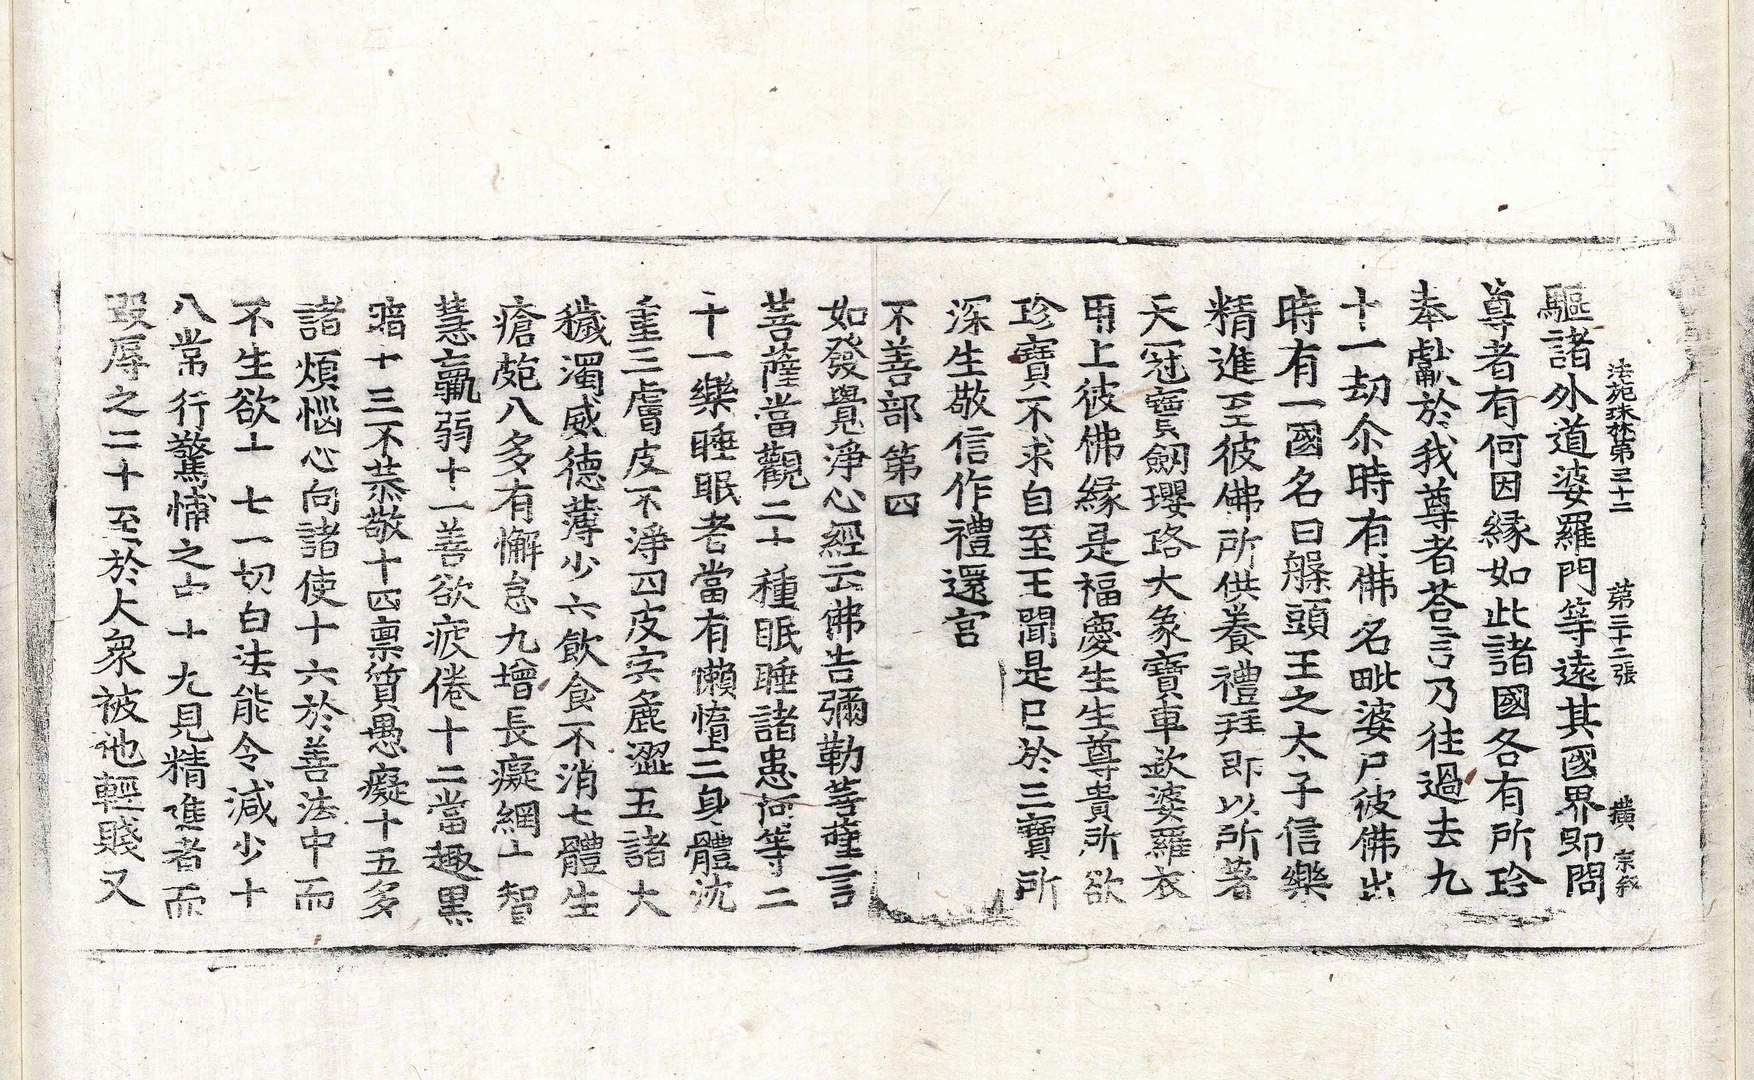 法苑珠林第三十三 第三十二張 橫 宗敘
驅諸外道婆羅門等遠其國界即問
尊者有何因緣如此諸國各有所珎
奉獻於我尊者荅言乃往過去九
十一劫尒時有佛名毗婆尸彼佛出
時有一國名曰槃頭王之太子信樂
精進至彼佛所供養禮拜即以所著
天冠寶劒瓔珞大象寶車欽婆羅衣
用上彼佛緣是福慶生生尊貴所欲
珍寶不求自至王聞是已於三寶所
深生敬信作禮還宮
不善部第四
如發覺淨心經云佛告彌勒菩薩言
菩薩當觀二十種眠睡諸患何等二
十一樂睡眠者當有懶惰二身體沈
重三膚皮不淨四皮宍麁澀五諸大
穢濁威德薄少六飲食不消七體生
瘡皰八多有懈怠九增長癡網十智
慧羸弱十一善欲疲倦十二當趣黑
暗十三不恭敬十四稟質愚癡十五多
諸煩惱心向諸使十六於善法中而
不生欲十七一切白法能令減少十
八常行驚怖之中十九見精進者而
毀辱之二十至於大衆被他輕賤又